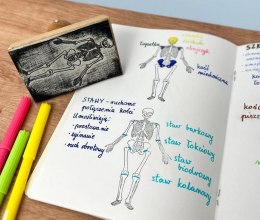 łopatka
kość
miednicza
STAWY - ruchome
połączenia kości
Umożliwiają:
• prostowanie
• zginanie
• ruch obrotowy
staw barkowy
staw łokciowy
staw
biodrowy
staw kolanowy